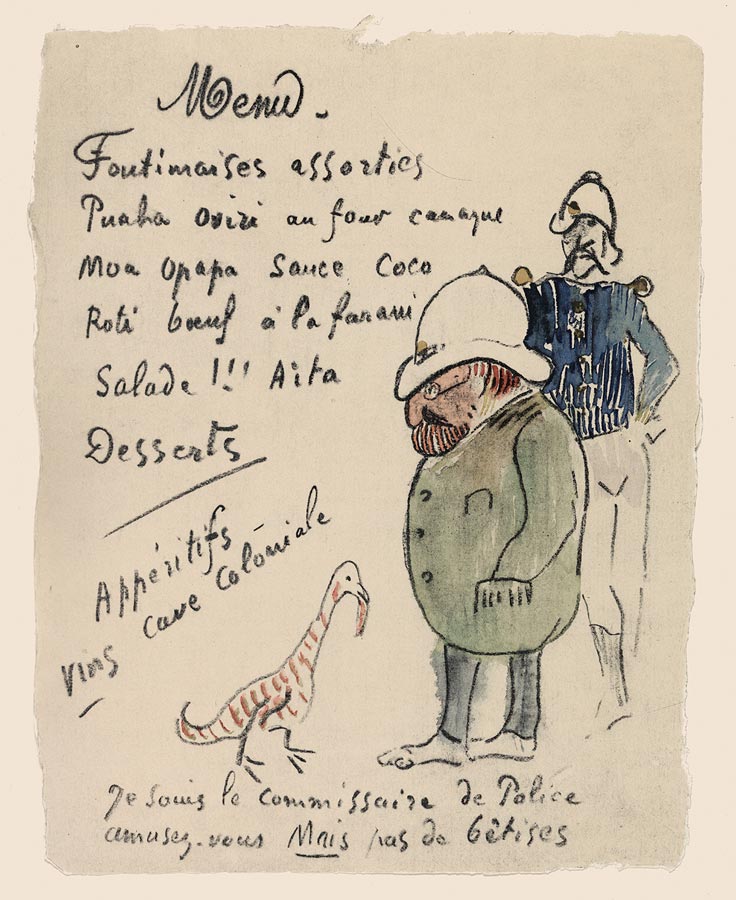 Menu.
Foutimaises assorties
Puaha Oviri au four canaque
Moa Opapa Sauce Coco
Roti bœuf à la farani
Salade !!! Aita
Desserts
Appéritifs
cave Coloniale
vins
Je souis le Commissaire de Police
amusez-vous Mais pas de bêtises